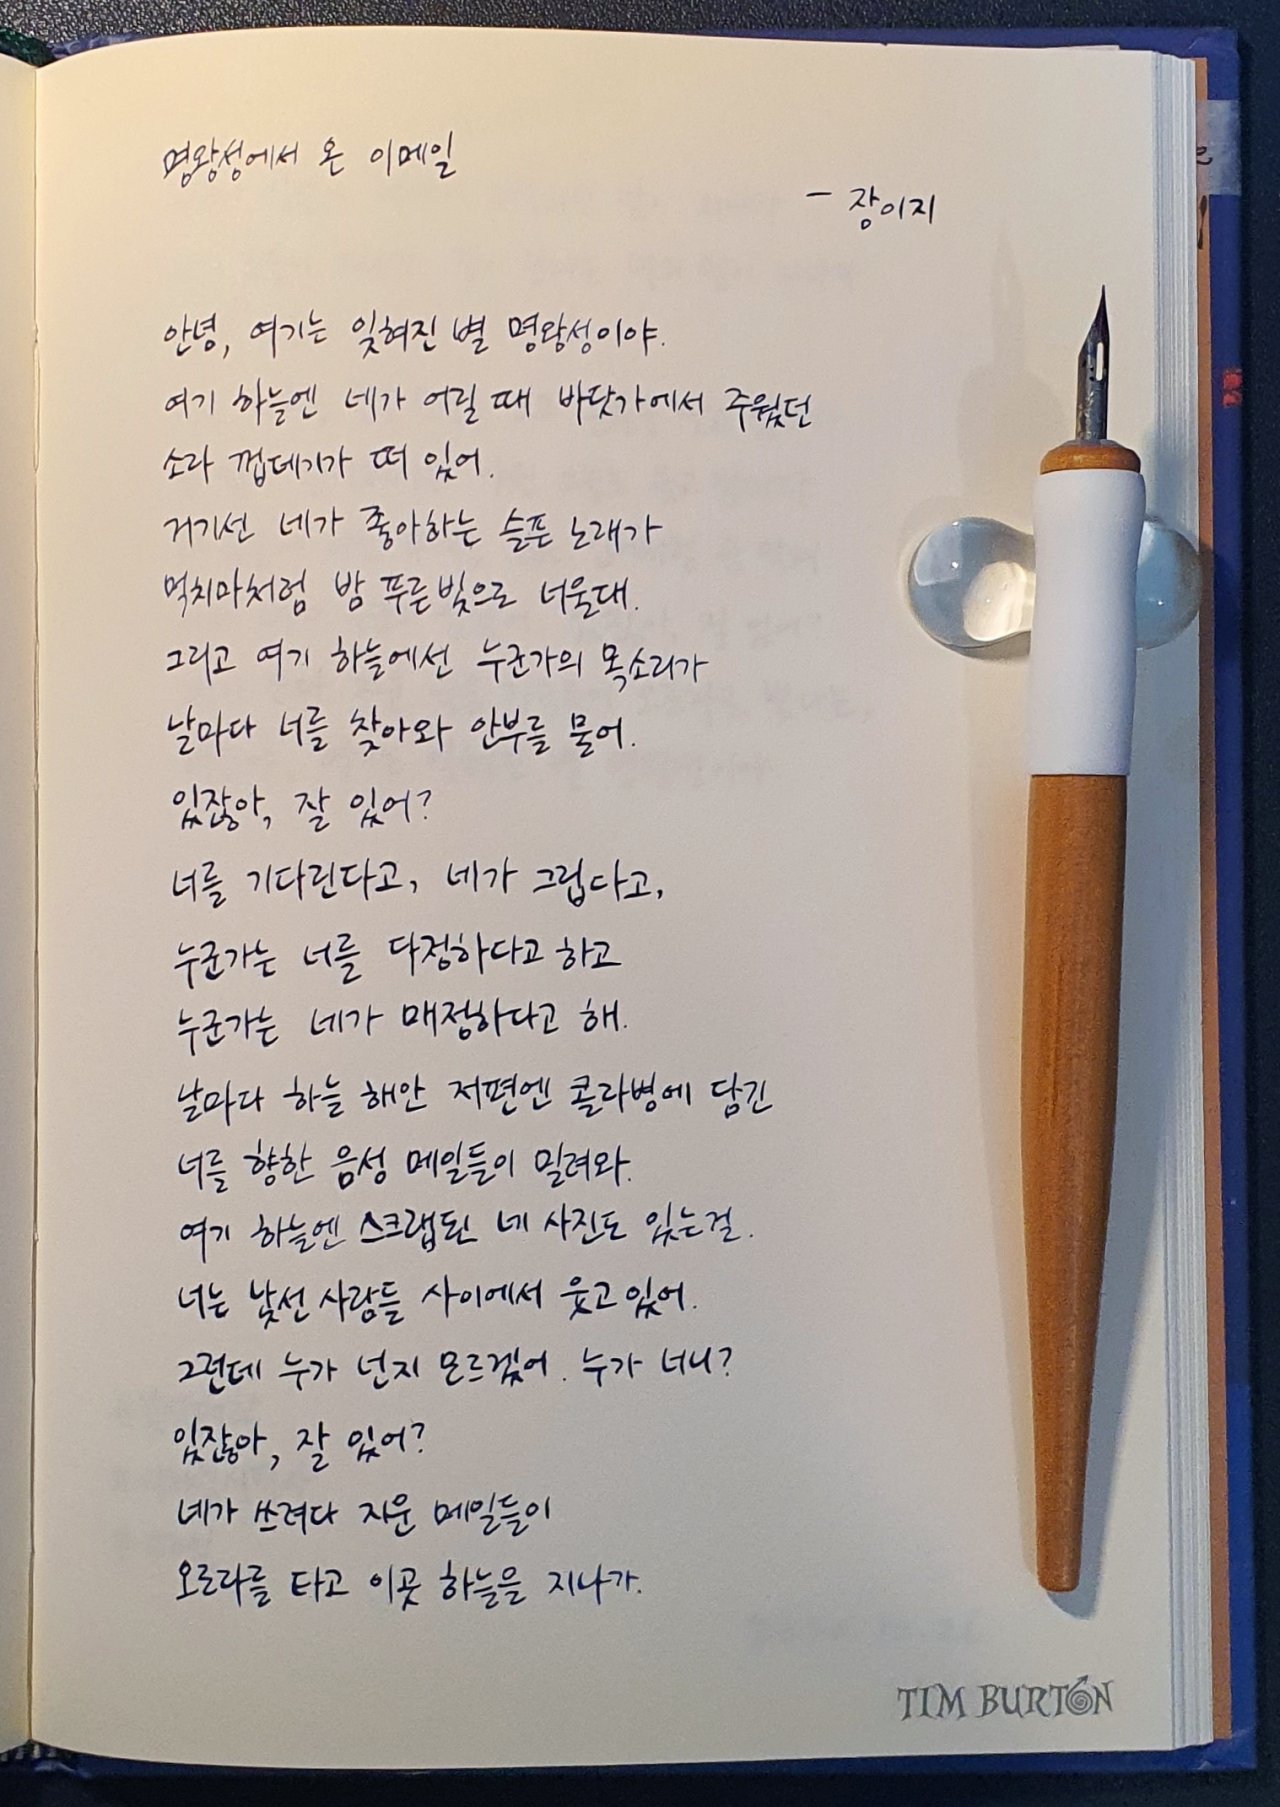 명왕성에서 온 이메일
- 장이지
안녕, 여기는 잊혀진 별 명왕성이야.
여기 하늘엔 네가 어릴 때 바닷가에서 주웠던
소라 껍데기가 떠 있어.
거기선 네가 좋아하는 슬픈 노래가
먹치마처럼 밤 푸른 빛으로 너울대.
그리고 여기 하늘에선 누군가의 목소리가
날마다 너를 찾아와 안부를 물어.
있잖아, 잘 있어?
너를 기다린다고, 네가 그립다고,
누군가는 너를 다정하다고 하고
누군가는 네가 매정하다고 해.
날마다 하늘 해안 저편엔 콜라병에 담긴
너를 향한 음성 메일들이 밀려와.
여기 하늘엔 스크랩된 네 사진도 있는걸.
너는 낯선 사람들 사이에서 웃고 있어.
그런데 누가 넌지 모르겠어. 누가 너니?
있잖아, 잘 있어?
네가 쓰려다 지운 메일들이
오로라를 타고 이곳 하늘을 지나가.
TIM BURTON